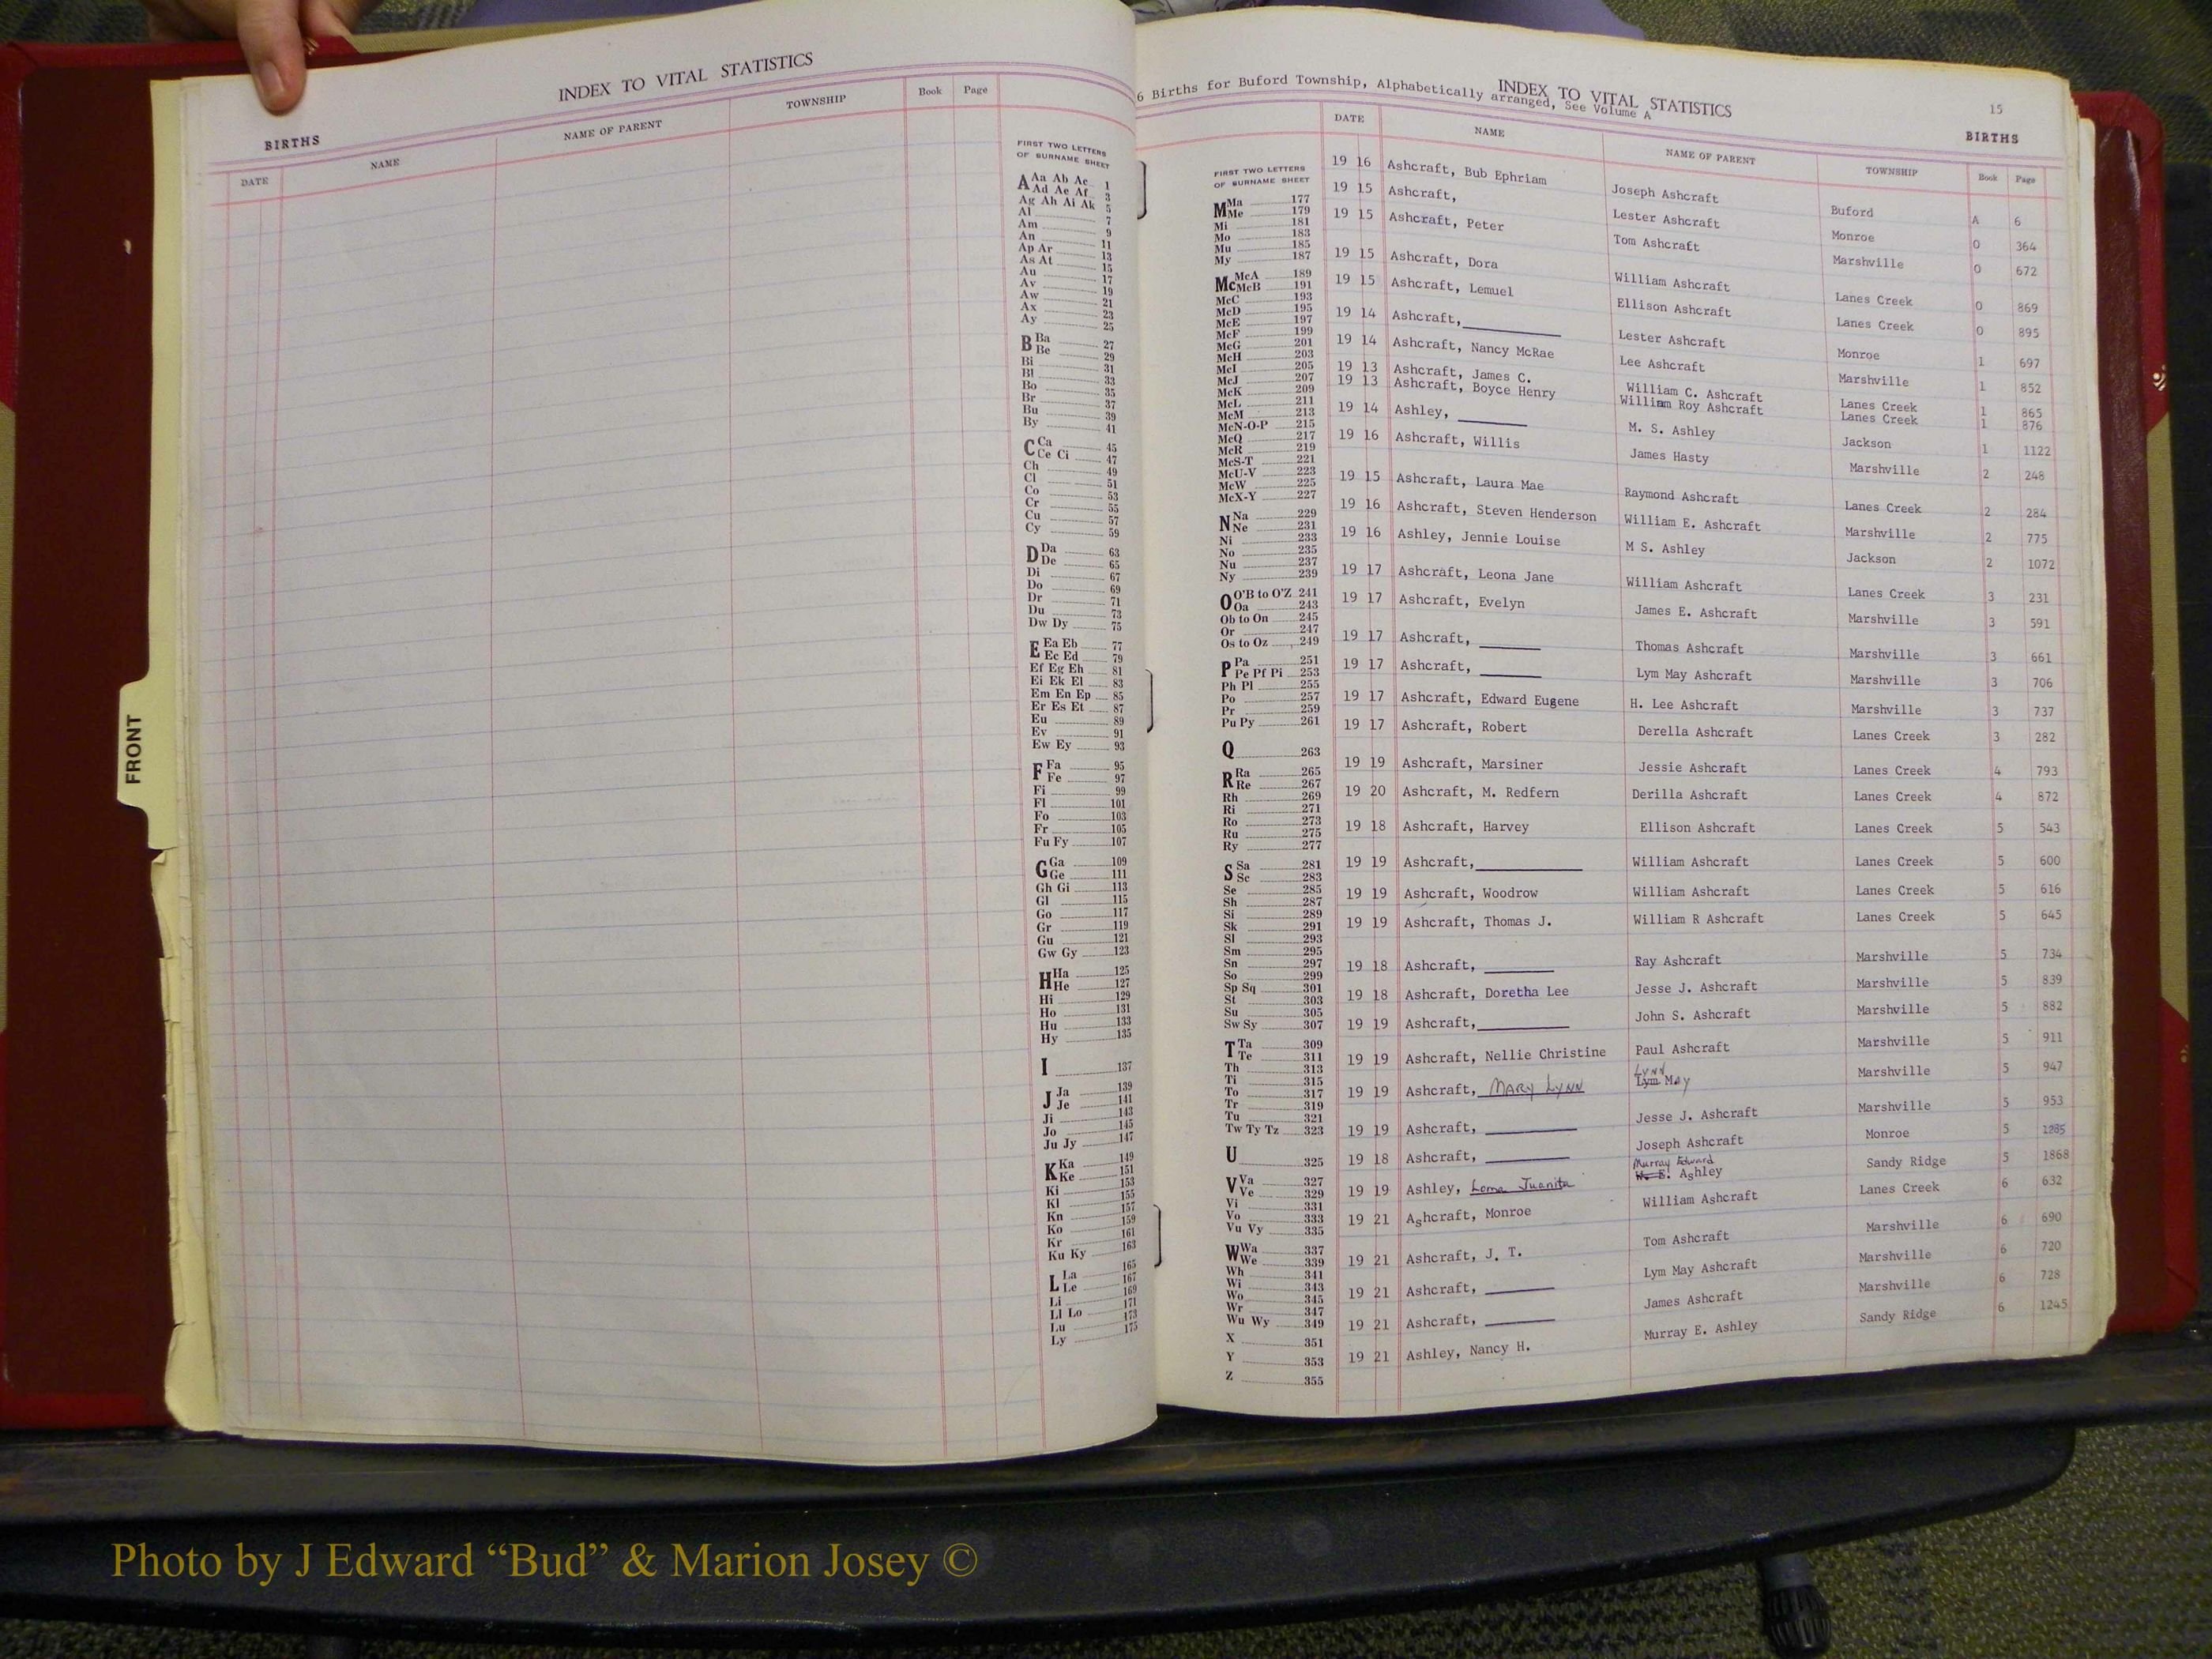 INDEX TO VITAL STATISTICS
BIRTHS
DATE NAME NAME OF PARENT TOWNSHIP Book Page
FIRST TWO LETTERS
OF SURNAME SHEET
A Aa Ab Ac 1
Ad Ae Af 3
Ag Ah Ai Ak 5
Al 7
Am 9
An 11
Ap Ar 13
As At 15
Au 17
Av 19
Aw 21
Ax 23
Ay 25
B Ba 27
Be 29
Bi 31
Bl 33
Bo 35
Br 37
Bu 39
By 41
C Ca 45
Ce Ci 47
Ch 49
Cl 51
Co 53
Cr 55
Cu 57
Cy 59
D Da 63
De 65
Di 67
Do 69
Dr 71
Du 73
Dw Dy 75
E Ea Eb 77
Ec Ed 79
Ef Eg Eh 81
Ei Ek El 83
Em En Ep 85
Er Es Et 87
Eu 89
Ev 91
Ew Ey 93
F Fa 95
Fe 97
Fi 99
Fl 101
Fo 103
Fr 105
Fu Fy 107
G Ga 109
Ge 111
Gh Gi 113
Gl 115
Go 117
Gr 119
Gu 121
Gw Gy 123
H Ha 125
He 127
Hi 129
Ho 131
Hu 133
Hy 135
I 137
J Ja 139
Je 141
Ji 143
Jo 145
Ju Jy 147
K Ka 149
Ke 151
Ki 153
Kl 155
Kn 157
Ko 159
Kr 161
Ku Ky 163
L La 165
Le 167
Li 169
Ll Lo 171
Lu 173
Ly 175
FRONT
6 Births for Buford Township, Alphabetically arranged, See Volume A
INDEX TO VITAL STATISTICS
15
BIRTHS
FIRST TWO LETTERS
OF SURNAME SHEET
M Ma 177
Me 179
Mi 181
Mo 183
Mu 185
My 187
Mc McA 189
McB 191
McC 193
McD 195
McE 197
McF 199
McG 201
McH 203
McI 205
McJ 207
McK 209
McL 211
McM 213
McN-O-P 215
McQ 217
McR 219
McS-T 221
McU-V 223
McW 225
McX-Y 227
N Na 229
Ne 231
Ni 233
No 235
Nu 237
Ny 239
O O'B to O'Z 241
Oa 243
Ob to On 245
Or 247
Os to Oz 249
P Pa 251
Pe Pf Pi 253
Ph Pl 255
Po 257
Pr 259
Pu Py 261
Q 263
R Ra 265
Re 267
Rh 269
Ri 271
Ro 273
Ru 275
Ry 277
S Sa 281
Sc 283
Se 285
Sh 287
Si 289
Sk 291
Sl 293
Sm 295
Sn 297
So 299
Sp Sq 301
St 303
Su 305
Sw Sy 307
T Ta 309
Te 311
Th 313
Ti 315
To 317
Tr 319
Tu 321
Tw Ty Tz 323
U 325
V Va 327
Ve 329
Vi 331
Vo 333
Vu Vy 335
W Wa 337
We 339
Wh 341
Wi 343
Wo 345
Wr 347
Wu Wy 349
X 351
Y 353
Z 355
DATE NAME NAME OF PARENT TOWNSHIP Book Page
19 16 Ashcraft, Bub Ephriam Joseph Ashcraft Buford A 6
19 15 Ashcraft, Lester Ashcraft Monroe 0 364
19 15 Ashcraft, Peter Tom Ashcraft Marshville 0 672
19 15 Ashcraft, Dora William Ashcraft Lanes Creek 0 869
19 15 Ashcraft, Lemuel Ellison Ashcraft Lanes Creek 0 895
19 14 Ashcraft, Lester Ashcraft Monroe 1 697
19 14 Ashcraft, Nancy McRae Lee Ashcraft Marshville 1 852
19 13 Ashcraft, James C. William C. Ashcraft Lanes Creek 1 865
19 13 Ashcraft, Boyce Henry William Roy Ashcraft Lanes Creek 1 876
19 14 Ashley, M. S. Ashley Jackson 1 1122
19 16 Ashcraft, Willis James Hasty Marshville 2 248
19 15 Ashcraft, Laura Mae Raymond Ashcraft Lanes Creek 2 284
19 16 Ashcraft, Steven Henderson William E. Ashcraft Marshville 2 775
19 16 Ashley, Jennie Louise M S. Ashley Jackson 2 1072
19 17 Ashcraft, Leona Jane William Ashcraft Lanes Creek 3 231
19 17 Ashcraft, Evelyn James E. Ashcraft Marshville 3 591
19 17 Ashcraft, Thomas Ashcraft Marshville 3 661
19 17 Ashcraft, Lym May Ashcraft Marshville 3 706
19 17 Ashcraft, Edward Eugene H. Lee Ashcraft Marshville 3 737
19 17 Ashcraft, Robert Derella Ashcraft Lanes Creek 3 282
19 19 Ashcraft, Marsiner Jessie Ashcraft Lanes Creek 4 793
19 20 Ashcraft, M. Redfern Derilla Ashcraft Lanes Creek 4 872
19 18 Ashcraft, Harvey Ellison Ashcraft Lanes Creek 5 543
19 19 Ashcraft, William Ashcraft Lanes Creek 5 600
19 19 Ashcraft, Woodrow William Ashcraft Lanes Creek 5 616
19 19 Ashcraft, Thomas J. William R Ashcraft Lanes Creek 5 645
19 18 Ashcraft, Ray Ashcraft Marshville 5 734
19 18 Ashcraft, Doretha Lee Jesse J. Ashcraft Marshville 5 839
19 19 Ashcraft, John S. Ashcraft Marshville 5 882
19 19 Ashcraft, Nellie Christine Paul Ashcraft Marshville 5 911
19 19 Ashcraft, MARY LYNN LYNN Lym May Marshville 5 947
19 19 Ashcraft, Jesse J. Ashcraft Marshville 5 953
19 18 Ashcraft, Joseph Ashcraft Monroe 5 1285
19 19 Ashley, Lorna Juanita Murray Edward Ashley Sandy Ridge 5 1868
19 21 Ashcraft, Monroe William Ashcraft Lanes Creek 6 632
19 21 Ashcraft, J. T. Tom Ashcraft Marshville 6 690
19 21 Ashcraft, Lym May Ashcraft Marshville 6 720
19 21 Ashcraft, James Ashcraft Marshville 6 728
19 21 Ashley, Nancy H. Murray E. Ashley Sandy Ridge 6 1245
Photo by J Edward “Bud” & Marion Josey ©